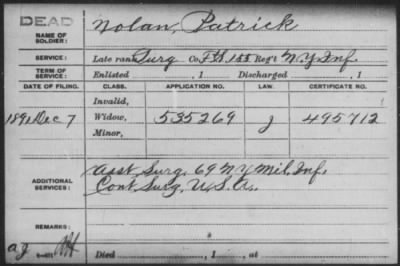 DEAD Nolan, Patrick
NAME OF SOLDIER:
SERVICE: Late rank Surg Co. F&S 155 Reg't N.Y. Inf.
TERM OF SERVICE: Enlisted , 1 Discharged , 1
DATE OF FILING. CLASS. APPLICATION NO. LAW. CERTIFICATE NO.
Invalid,
Dec 7 Widow, 535269 J 495712
Minor,
ADDITIONAL SERVICES: Asst. Surg. 69 N.Y. Mil. Inf.
Cont. Surg. U.S.A.
REMARKS:
Died , 1 , at